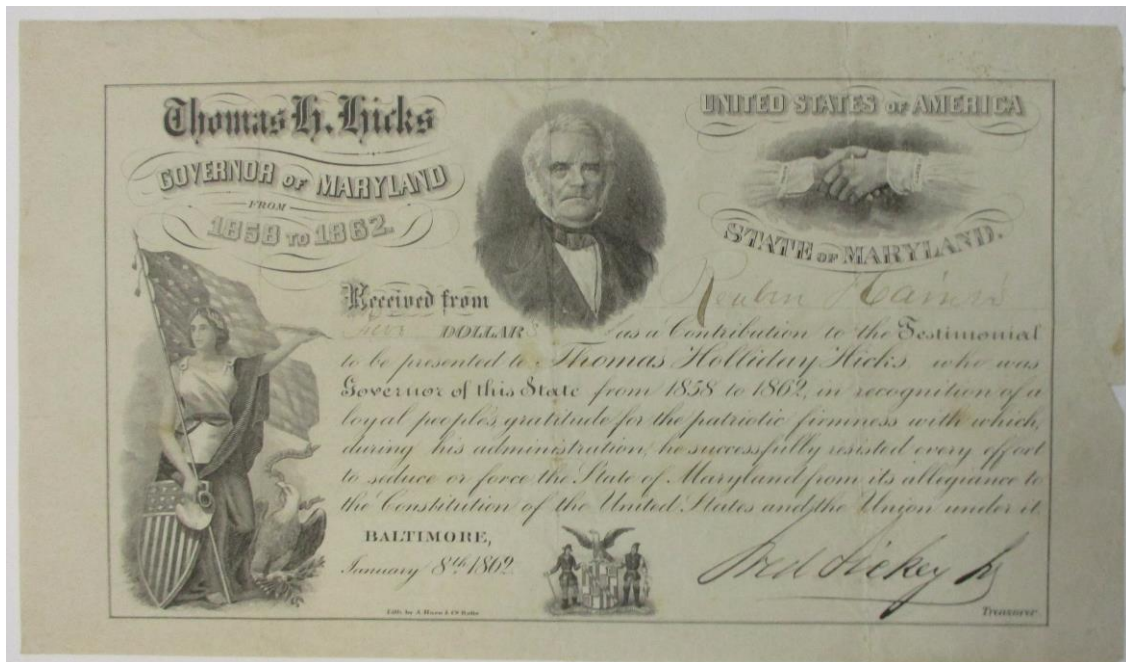 Thomas H. Hicks
GOVERNOR OF MARYLAND
FROM
1858 TO 1862.
UNITED STATES OF AMERICA
STATE OF MARYLAND.
Received from Reuben Haines
DOLLARS as a Contribution to the Testimonial
to be presented to Thomas Holliday Hicks who was
Governor of this State from 1858 to 1862, in recognition of a
loyal people's gratitude for the patriotic firmness with which,
during his administration, he successfully resisted every effort
to seduce or force the State of Maryland from its allegiance to
the Constitution of the United States and the Union under it.
BALTIMORE,
January 8th 1862.
Fred Fickey Jr
Treasurer.
Lith. by A. Hoen & Co. Balto.